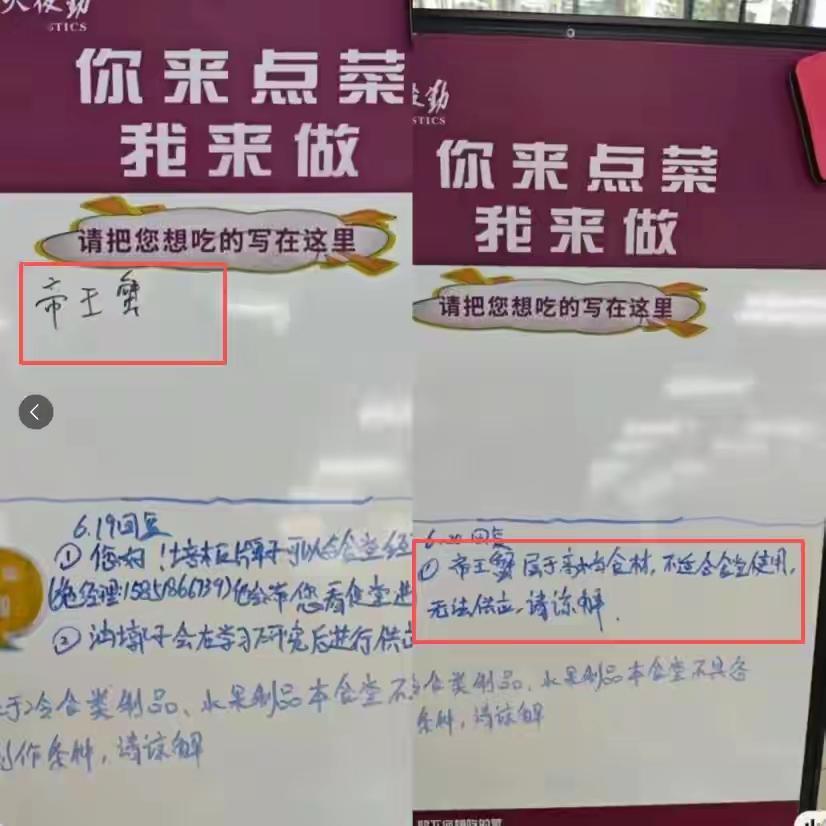 火夜勤
STICS
你来点菜
我来做
请把您想吃的写在这里
帝王蟹
6.19回复
① 您好！
可以与食堂经
经理:15851866739)他会带您看食堂进
② 油墩子会在学习研究后进行供应
于冷食类制品、水果制品本食堂不
作条件，请谅解
勤
STICS
你来点菜
我来做
请把您想吃的写在这里
回复
① 帝王蟹属于高档食材，不适合食堂使用，
无法供应，请谅解.
食类制品、水果制品本食堂不具备
条件，请谅解